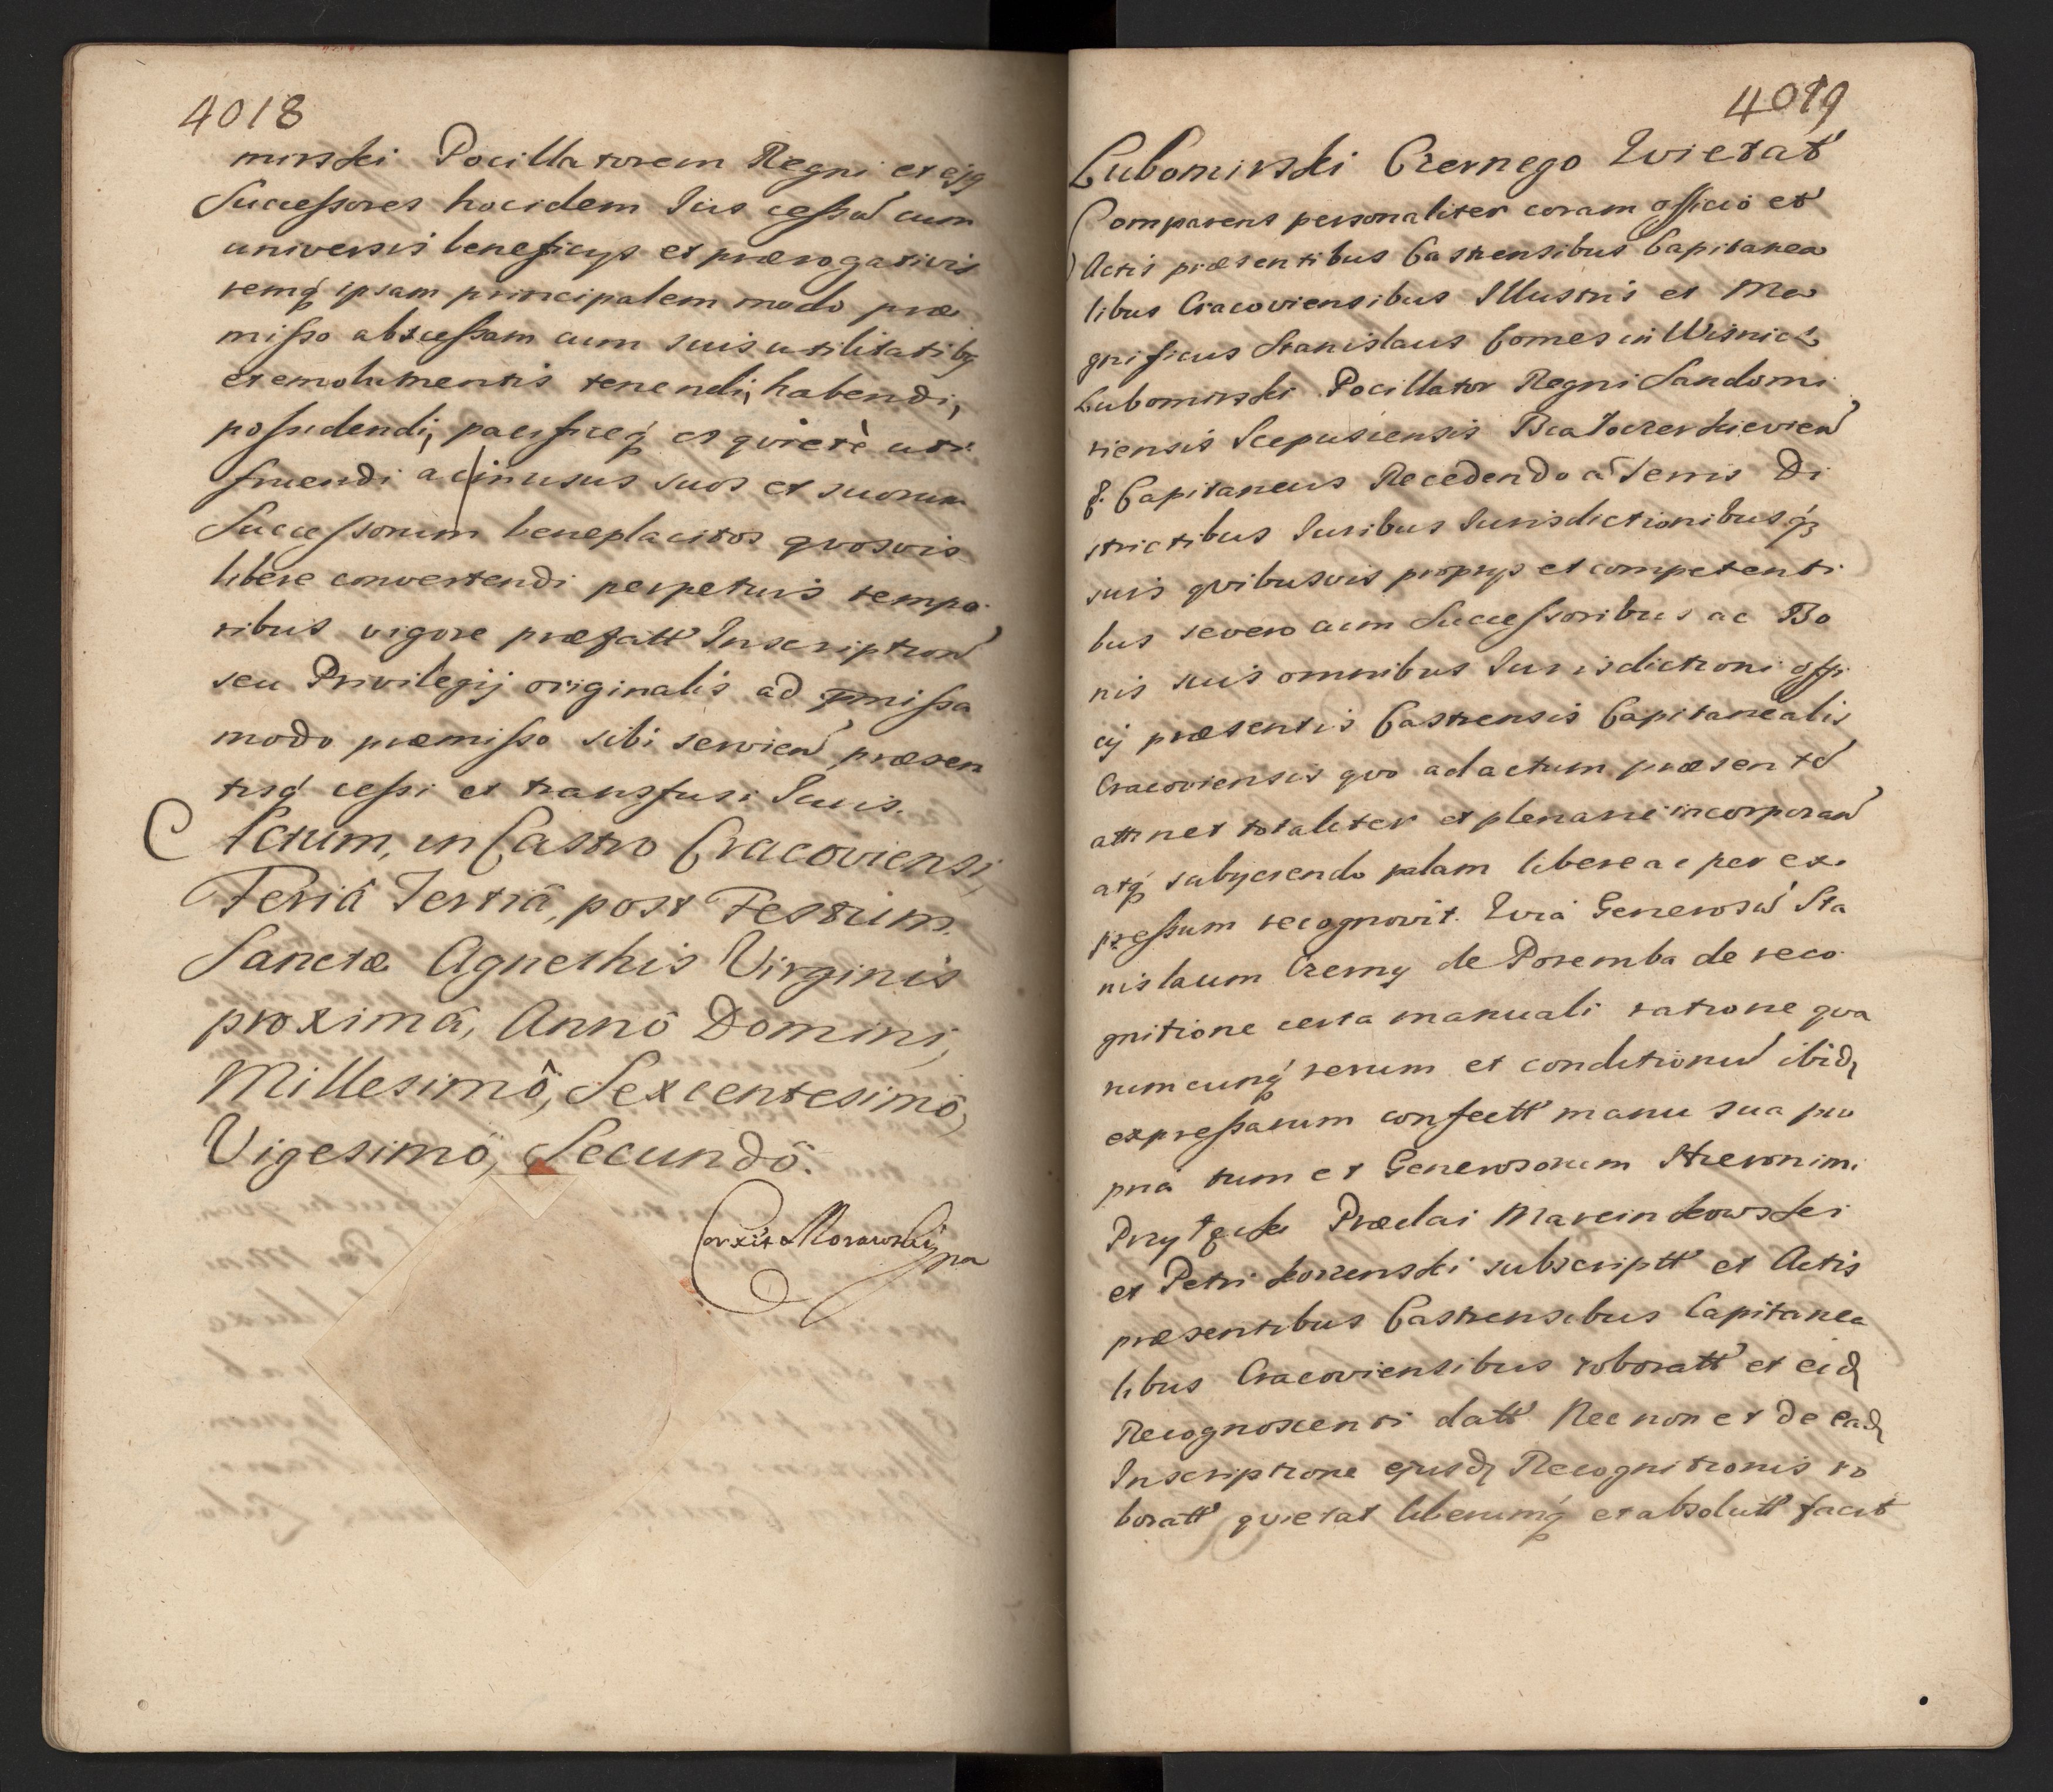 4018
mirski Pocillatorem Regni et ejq
Successores hocidem Ius cessũ cum
universis beneficys et prærogativis
remq́ ipsam principalem modo præ
misso abscessam cum suis utilitatibq
et emolumentis tenendi, habendi,
possidendi, pacificeq́ et qvietè uti
fruendi ac in usus suos et suorum
Successorum beneplacitos qvosvis
libere convertendi perpetuis tempo
ribus vigore præfatt Inscription
seu Privilegij originalis ad pmissa
modo præmisso sibi servien præsen
tisq́ cessi et transfusi Iuris.
Actum, in Castro Cracoviensi,
Feriâ Tertiâ, post Festum
Sanctæ Agnethis Virginis
proximâ, Annô Domini,
Millesimô, Sexcentesimô,
Vigesimô, Secundô.
Corxit Morawski mpa
4019
Lubomirski Czernego Qvietat
Comparens personaliter coram officio et
Actis præsentibus Castrensibus Capitanea
libus Cracoviensibus Illustris et Ma
gnificus Stanislaus Comes in Wisnicz
Lubomirski Pocillator Regni Sandomi
riensis Scepusiensis Białocerkievien
&. Capitaneus Recedendo a Terris Di
strictibus Iuribus Iurisdictionibusq́ꝫ
suis qvibusvis proprys et competenti
bus se vero cum Successoribus ac Bo
nis suis omnibus Iurisdictioni offi
cij præsentis Castrensis Capitanealis
Cracoviensis qvo ad actum præsente
attinet totaliter et plenarie incorporan
atq́ subyciendo palam libere ac per ex
pressum recognovit. Qvia Generosũ Sta
nislaum Czerny de Poremba de reco
gnitione certa manuali ratione qva
rumcunq́ rerum et conditionũ ibidꝫ
expressarum confectt manu sua pro
pria tum et Generosorum Hieronimi
Przyłęcki Prædai Marcinkowski
et Petri Korzenski subscriptt et Actis
præsentibus Castrensibus Capitanea
libus Cracoviensibus roboratt et eidꝫ
Recognoscenti datt Nec non et de eadꝫ
Inscriptione ejusdꝫ Recognitionis ro
boratt qvietat liberumq́ et absolutt facit